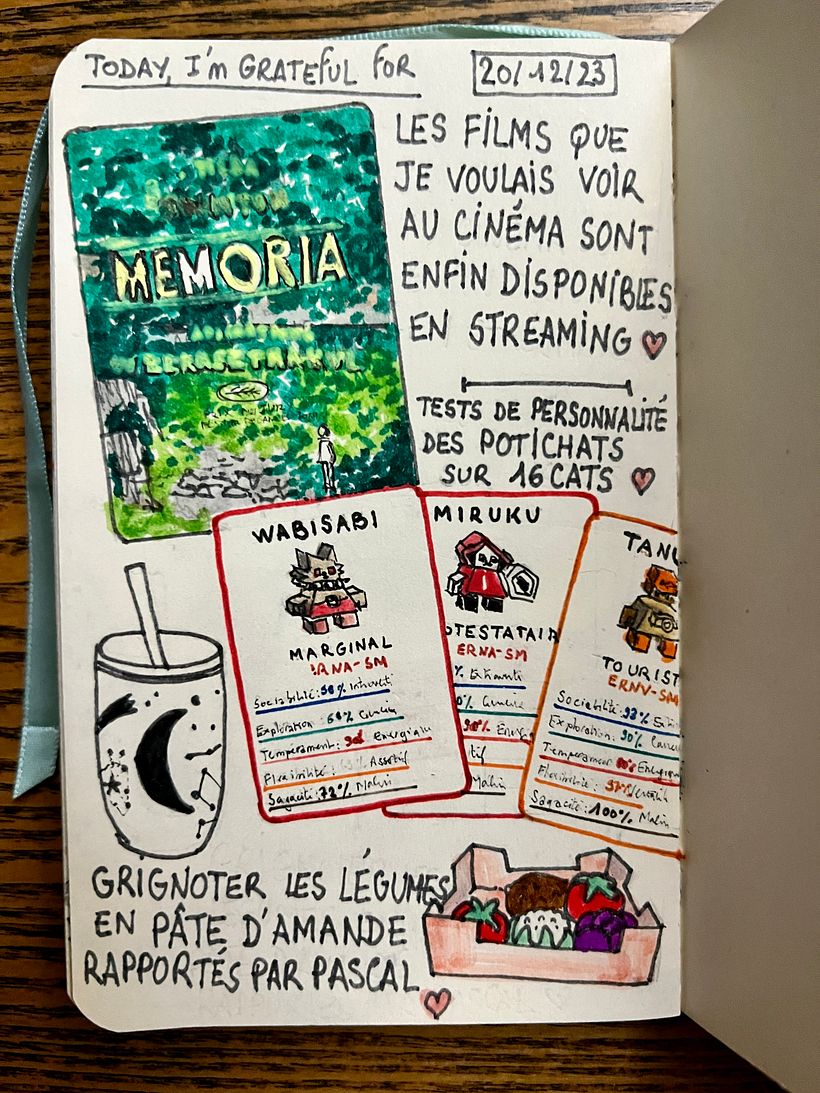 TODAY, I'm GRATEFUL FOR
20/12/23
LES FILMS QUE
JE VOULAIS VOIR
AU CINÉMA SONT
ENFIN DISPONIBLES
EN STREAMING
MEMORIA
TESTS DE PERSONNALITÉ
DES POTICHATS
SUR 16 CATS
WABISABI
MARGINAL
ERNA-SM
Sociabilité: 58% Introverti
Exploration: 68%
Temperament: Energique
Flexibilité: Assertif
Sagacité: 72% Malin
MIRUKU
TESTATAIR
ERNA-SM
% Extraverti
Malin
TANU
TOURIST
ERNV-SM
Sociabilité: 93%
Exploration: 90%
Temperament
Flexibilité: 57%
Sagacité: 100% Malin
GRIGNOTER LES LÉGUMES
EN PÂTE D'AMANDE
RAPPORTÉS PAR PASCAL